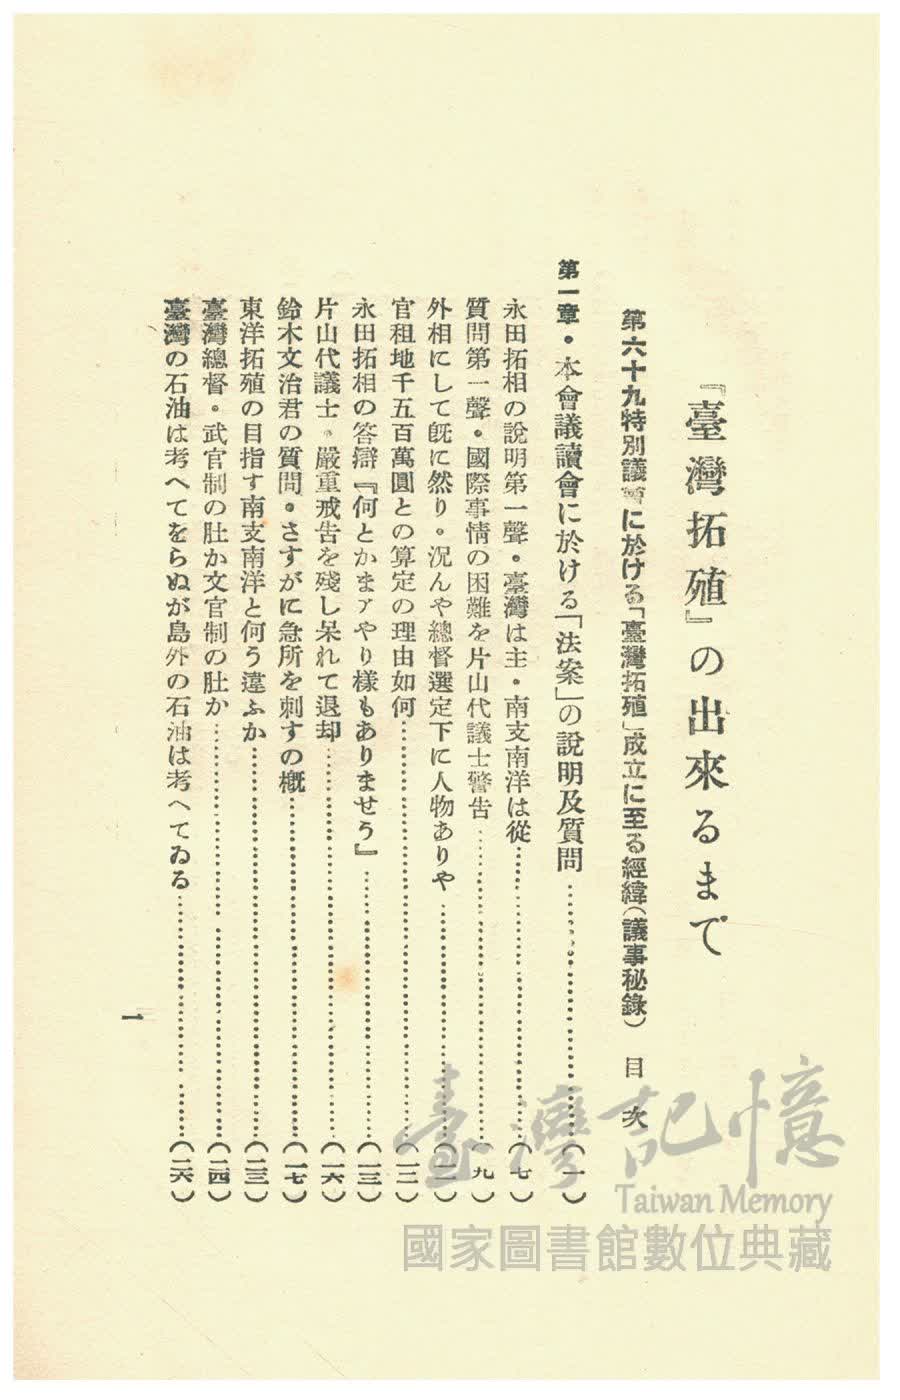 『臺灣拓殖』の出來るまで
第六十九特別議會に於ける「臺灣拓殖」成立に至る經緯（議事秘錄）　目　次
第一章・本會議讀會に於ける「法案」の說明及質問…………（一）
永田拓相の說明第一聲・臺灣は主・南支南洋は從…………（七）
質問第一聲・國際事情の困難を片山代議士警告…………（九）
外相にして既に然り。況んや總督選定下に人物ありや…………（一一）
官租地千五百萬圓との算定の理由如何…………（一二）
永田拓相の答辯『何とかまアやり樣もありませう』…………（一三）
片山代議士。嚴重戒告を殘し呆れて退却…………（一六）
鈴木文治君の質問。さすがに急所を刺すの槪…………（一七）
東洋拓殖の目指す南支南洋と何う違ふか…………（二三）
臺灣總督。武官制の肚か文官制の肚か…………（二四）
臺灣の石油は考へてをらぬが島外の石油は考へてゐる…………（二六）
一
臺灣記憶
Taiwan Memory
國家圖書館數位典藏